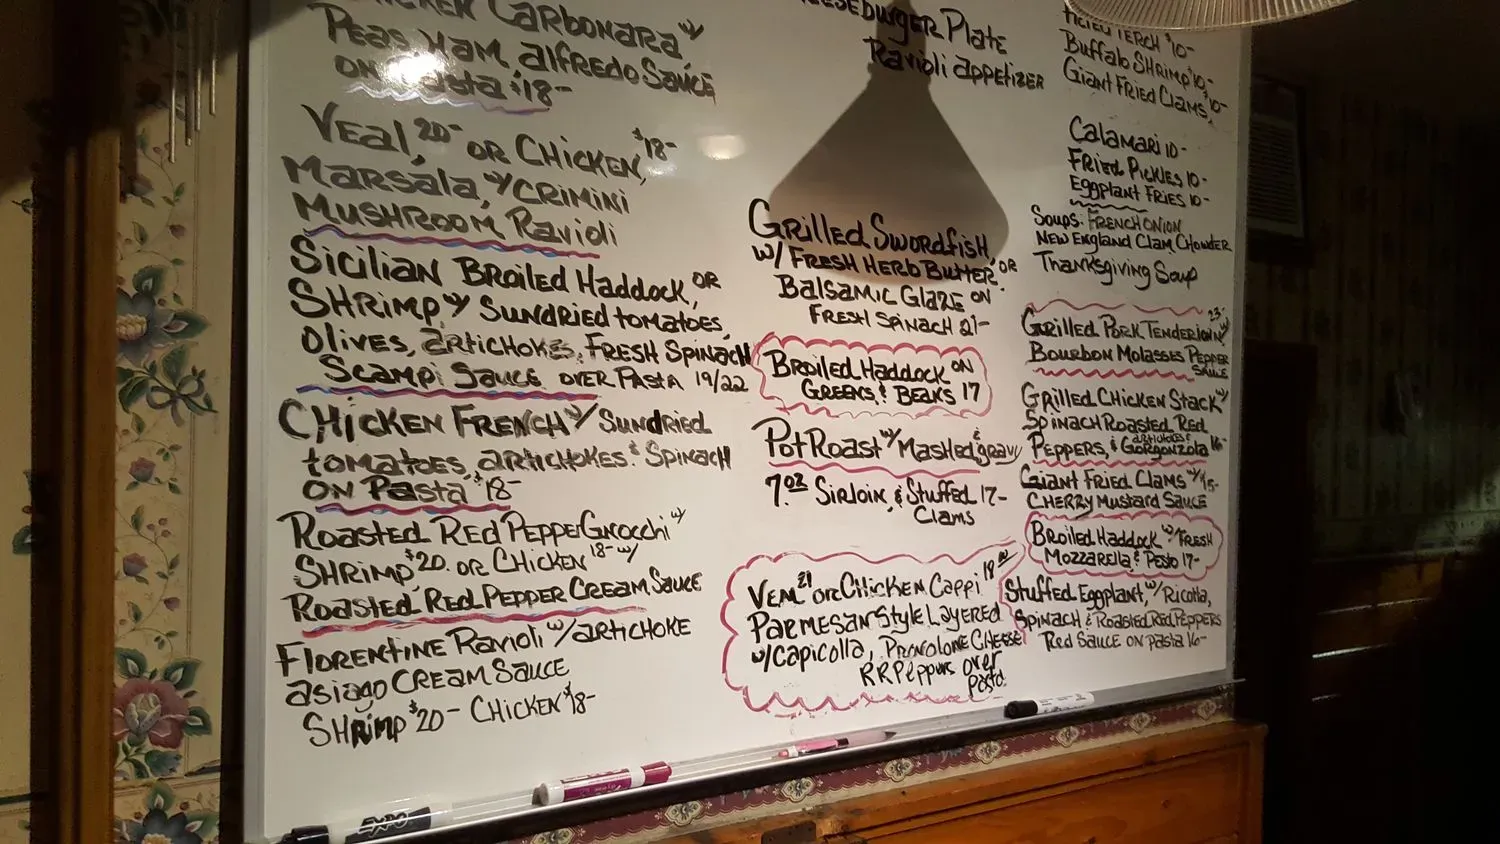 CHICKEN CARBONARA w/
PEAS, HAM, alfREdo SaUCE
ON Pasta $18-
VEAL, 20- OR CHICKEN, $18-
MARSala, w/ CRIMINI
MUSHROOM Ravioli
Sicilian BROILED HaddOCK, OR
SHRIMP w/ SUNDRIED tOMATOES,
OlIVES, aRtiCHOKES, FRESH SpINaCH
SCaMPi SaUCE OVER PaSTA 19/22
CHICKEN FRENCH w/ SUNDRIED
tOMATOES, aRTICHOKES & SPINaCH
ON Pasta $18-
ROaSTED RED PEPPER GNOCCHi w/
SHRIMP $20 OR CHICKEN 18- w/
ROaSTED RED PEPPER CREAM SaUCE
FlORENTINE RaviOli w/ aRTICHOKE
asiago CREaM SaUCE
SHRIMP $20- CHICKEN $18-
PlatE
Ravioli appETiZER
GRillED SwORdfisH,
w/ FRESH HERB BUTTER, OR
BalSaMIC GlaZE ON
FRESH SpiNaCH 21-
BROilED HaddOCK ON
GREENS & BEANS 17
POt ROaST w/ MaSHEd & gRavy
7 OZ SiRlOiN, & StuffEd 17-
ClaMS
VEAL 21 OR CHICKEN Cappi 18
PaRMESaN StylE LayEREd
w/ Capicolla, PROVOlONE CHEESE
R.R. PEppERS OVER
Pasta
PERCH $10-
Buffalo SHRIMP $10-
Giant FRiEd ClaMS, $10-
CalaMaRi 10-
FRIEd PICKlES 10-
Eggplant FRiES 10-
Soups: FRENCH ONiON
NEW ENglaNd ClaM CHOwdER
THaNKsgiviNg Soup
GRillEd PORK TENdERloiN w/ 23-
BOURBON MOlaSSES PEPPER
SaUCE
GRillEd CHICKEN StaCK w/
SpiNaCH ROaStEd REd
aRtiCHOKES &
PEPPERS, & GORgONZOla 16-
GiaNt FRiEd ClaMS w/ 15-
CHERRY MUSTaRd SaUCE
BROilEd HaddOCK w/ FRESH
MOZZaRElla & PEstO 17-
StuffEd Eggplant, w/ RiCOtta,
SpiNaCH & ROaStEd REd PEPPERS
REd SauCE ON pasta 16-
EXPO